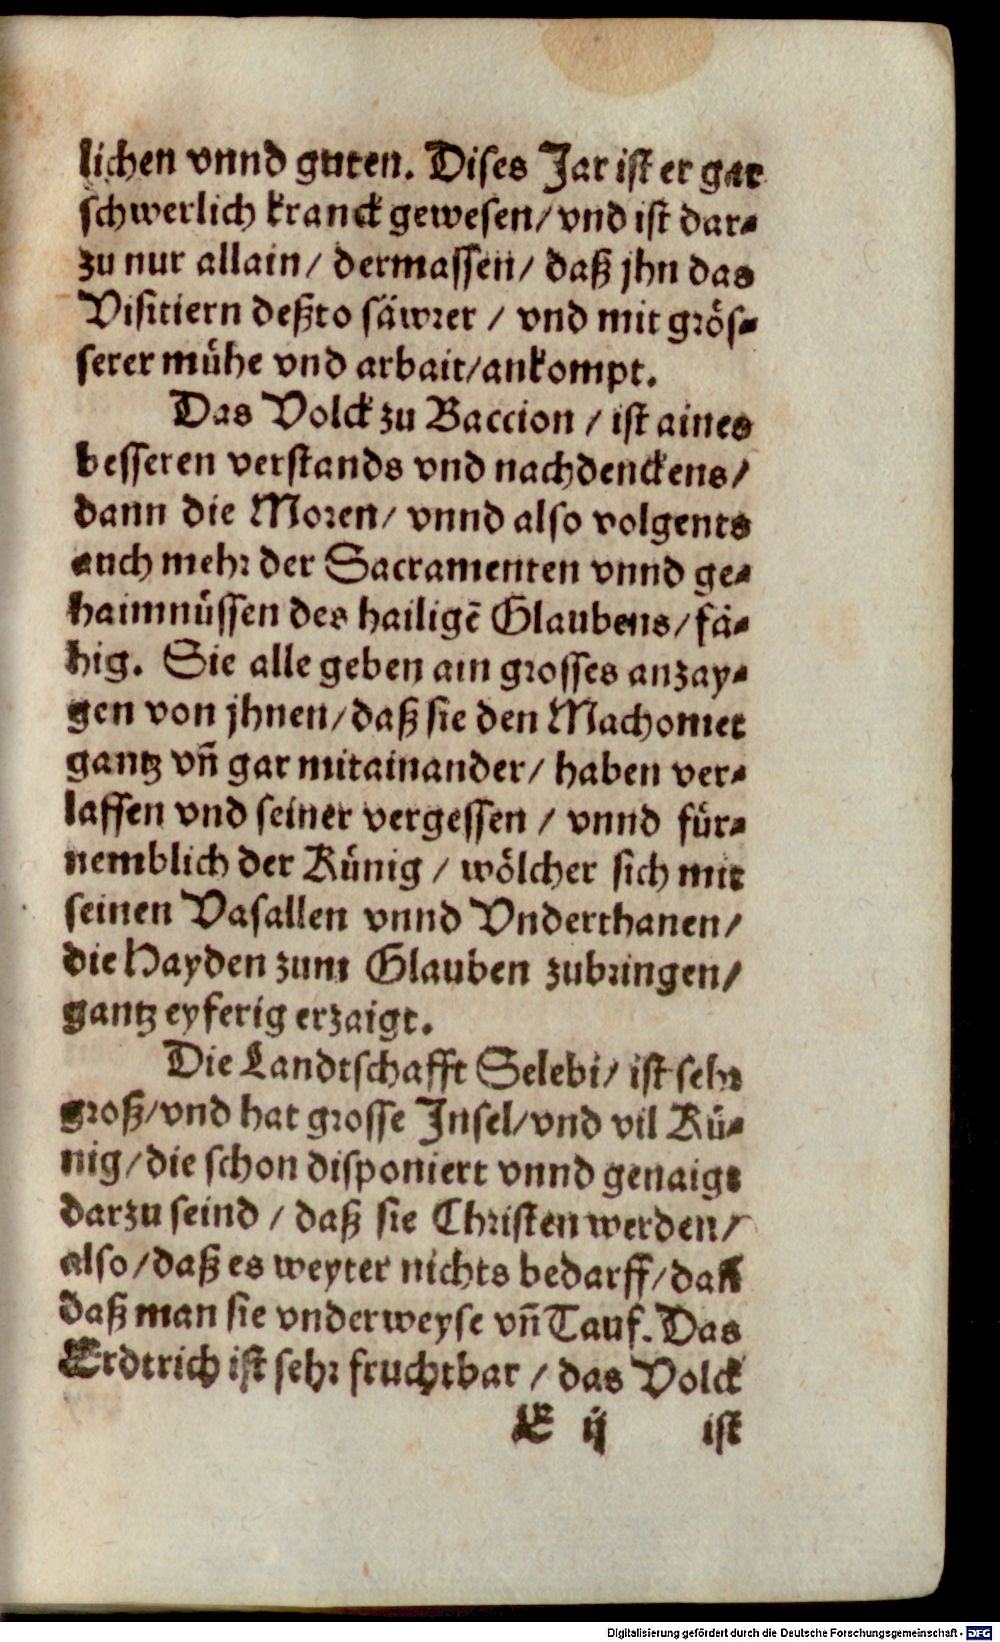 lichen vnnd guten. Dises Jar ist er gar
schwerlich kranck gewesen/ vnd ist dar⸗
zu nur allain/ dermassen/ daß jhn das
Visitiern deßto säwrer / vnd mit grös⸗
serer mühe vnd arbait/ ankompt.
Das Volck zu Baccion / ist aines
besseren verstands vnd nachdenckens/
dann die Moren/ vnnd also volgents
auch mehr der Sacramenten vnnd ge⸗
haimnüssen des hailigē Glaubens/ fä⸗
hig. Sie alle geben ain grosses anzay⸗
gen von jhnen/ daß sie den Machomet
gantz vñ gar mitainander/ haben ver⸗
lassen vnd seiner vergessen / vnnd für⸗
nemblich der Künig / wölcher sich mit
seinen Vasallen vnnd Vnderthanen/
die Hayden zum Glauben zubringen/
gantz eyferig erzaigt.
Die Landtschafft Selebi/ ist sehr
groß/ vnd hat grosse Insel/ vnd vil Kü⸗
nig/ die schon disponiert vnnd genaigt
darzu seind / daß sie Christen werden/
also/ daß es weyter nichts bedarff/ dañ
daß man sie vnderweyse vñ Tauf. Das
Erdtrich ist sehr fruchtbar / das Volck
E ij ist
Digitalisierung gefördert durch die Deutsche Forschungsgemeinschaft - DFG